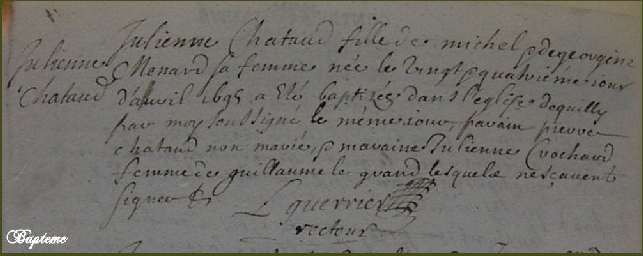 Julienne
Chataud
Julienne Chataud fille de michel & de georgine
Menard sa femme née le vingt & quatrieme jour
d'avril 1695 a eté baptizée dans l'eglise de quilly
par moy soussigné le méme jour, parain pierre
chataud non marié, & maraine Julienne Crochard
femme de guillaume le grand lesquels ne sçavent
signer
L guerrier
recteur
Bapteme